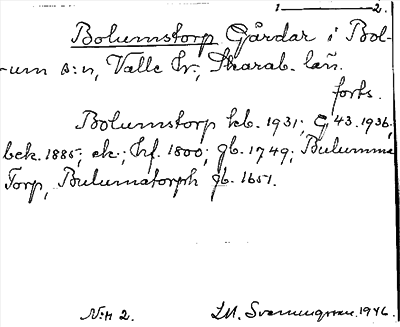 1—2.
Bolumstorp Gårdar i Bol-
-um s:n, Valle hr., Skarab. län.
forts.
Bolumstorp kb. 1931; G 43. 1936;
bek. 1885; ek.; hf. 1800; gb. 1749; Bulumma
Torp, Bulumatorph gb. 1651.
N:r 2. I.M. Svenungsson. 1946.